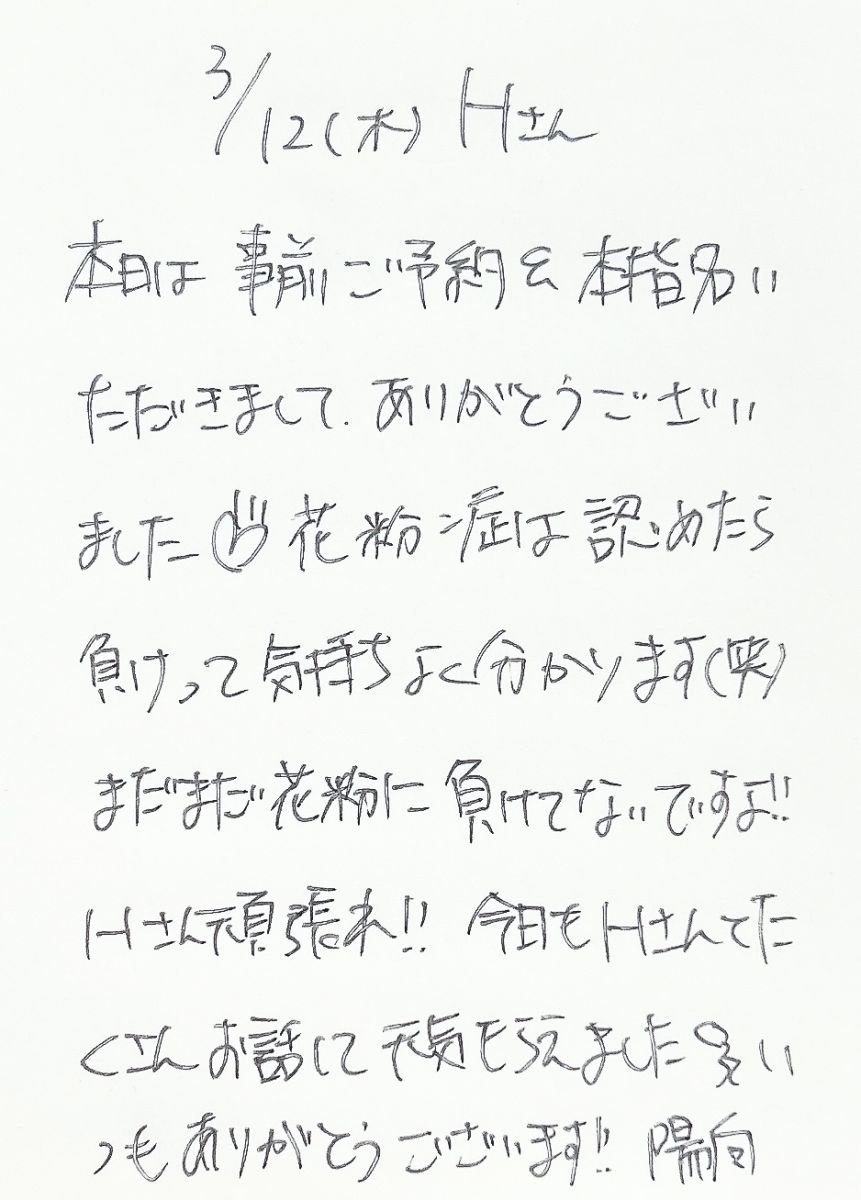 3/12(木) Hさん
本日は 事前ご予約&本指名い
ただきまして、ありがとうござい
ました 花粉症は認めたら
負けって気持ちよく分かります(笑)
まだまだ花粉に負けてないですよ!!
Hさん頑張れ!! 今日もHさんてた
くさんお話して元気もらえました い
つもありがとうございます!! 陽向